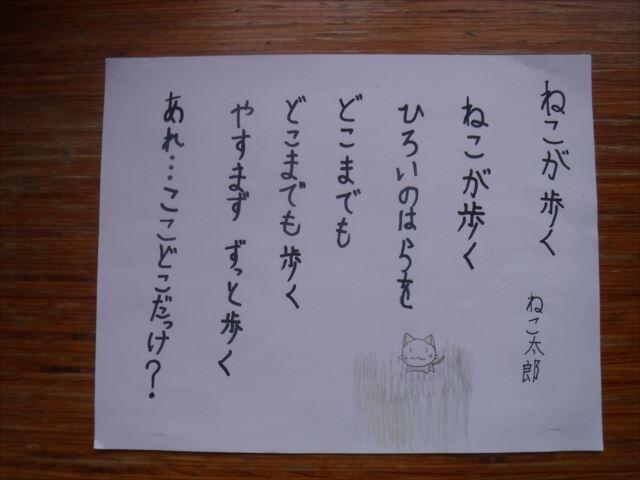 ねこが歩く
ねこ太郎
ねこが歩く
ひろいのはらを
どこまでも
どこまでも歩く
やすまず ずっと歩く
あれ…ここどこだっけ？